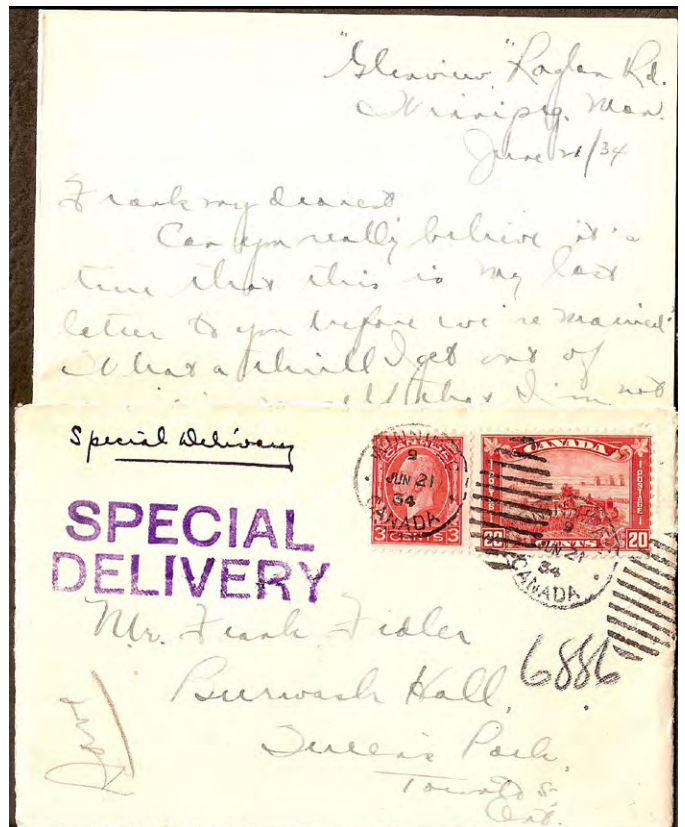 "Glenview" Raglan Rd.
Winnipeg. Man.
June 21/34
Frank my dearest
Can you really believe it's
true that this is my last
letter to you before we're married?
What a thrill I get out of
that I'm not
Special Delivery
SPECIAL
DELIVERY
WINNIPEG
9
JUN 21
34
CANADA
3 CENTS 3
CANADA
POSTES POSTAGE
20 CENTS 20
WINNIPEG
9
JUN 21
34
CANADA
Mr. Frank Fidler
Burwash Hall,
6886
Queen's Park,
Toronto 5.
Ont.